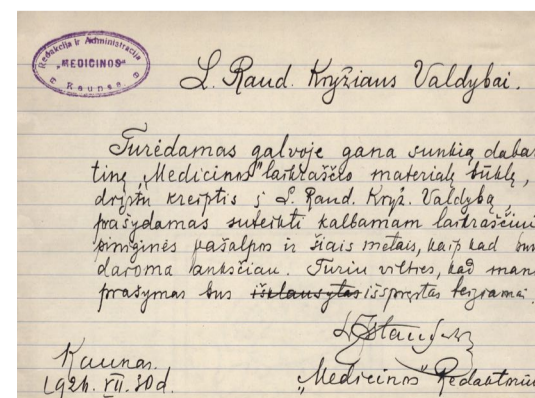 Redakcija ir Administracija
„MEDICINOS“
Kaunas
L. Raud. Kryžiaus Valdybai.
Turėdamas galvoje gana sunkią dabar
tinę „Medicinos“ laikraščio materialę būklę,
drįstu kreiptis į L. Raud. Kryž. Valdybą,
prašydamas suteikti kalbamam laikraščiui
piniginės pašalpos ir šiais metais, kaip kad buv
daroma anksčiau. Turiu vilties, kad mano
prašymas bus išklausytas išspręstas teigiamai.
Kaunas.
192 . VII. 30 d.
„Medicinos“ Redaktorius